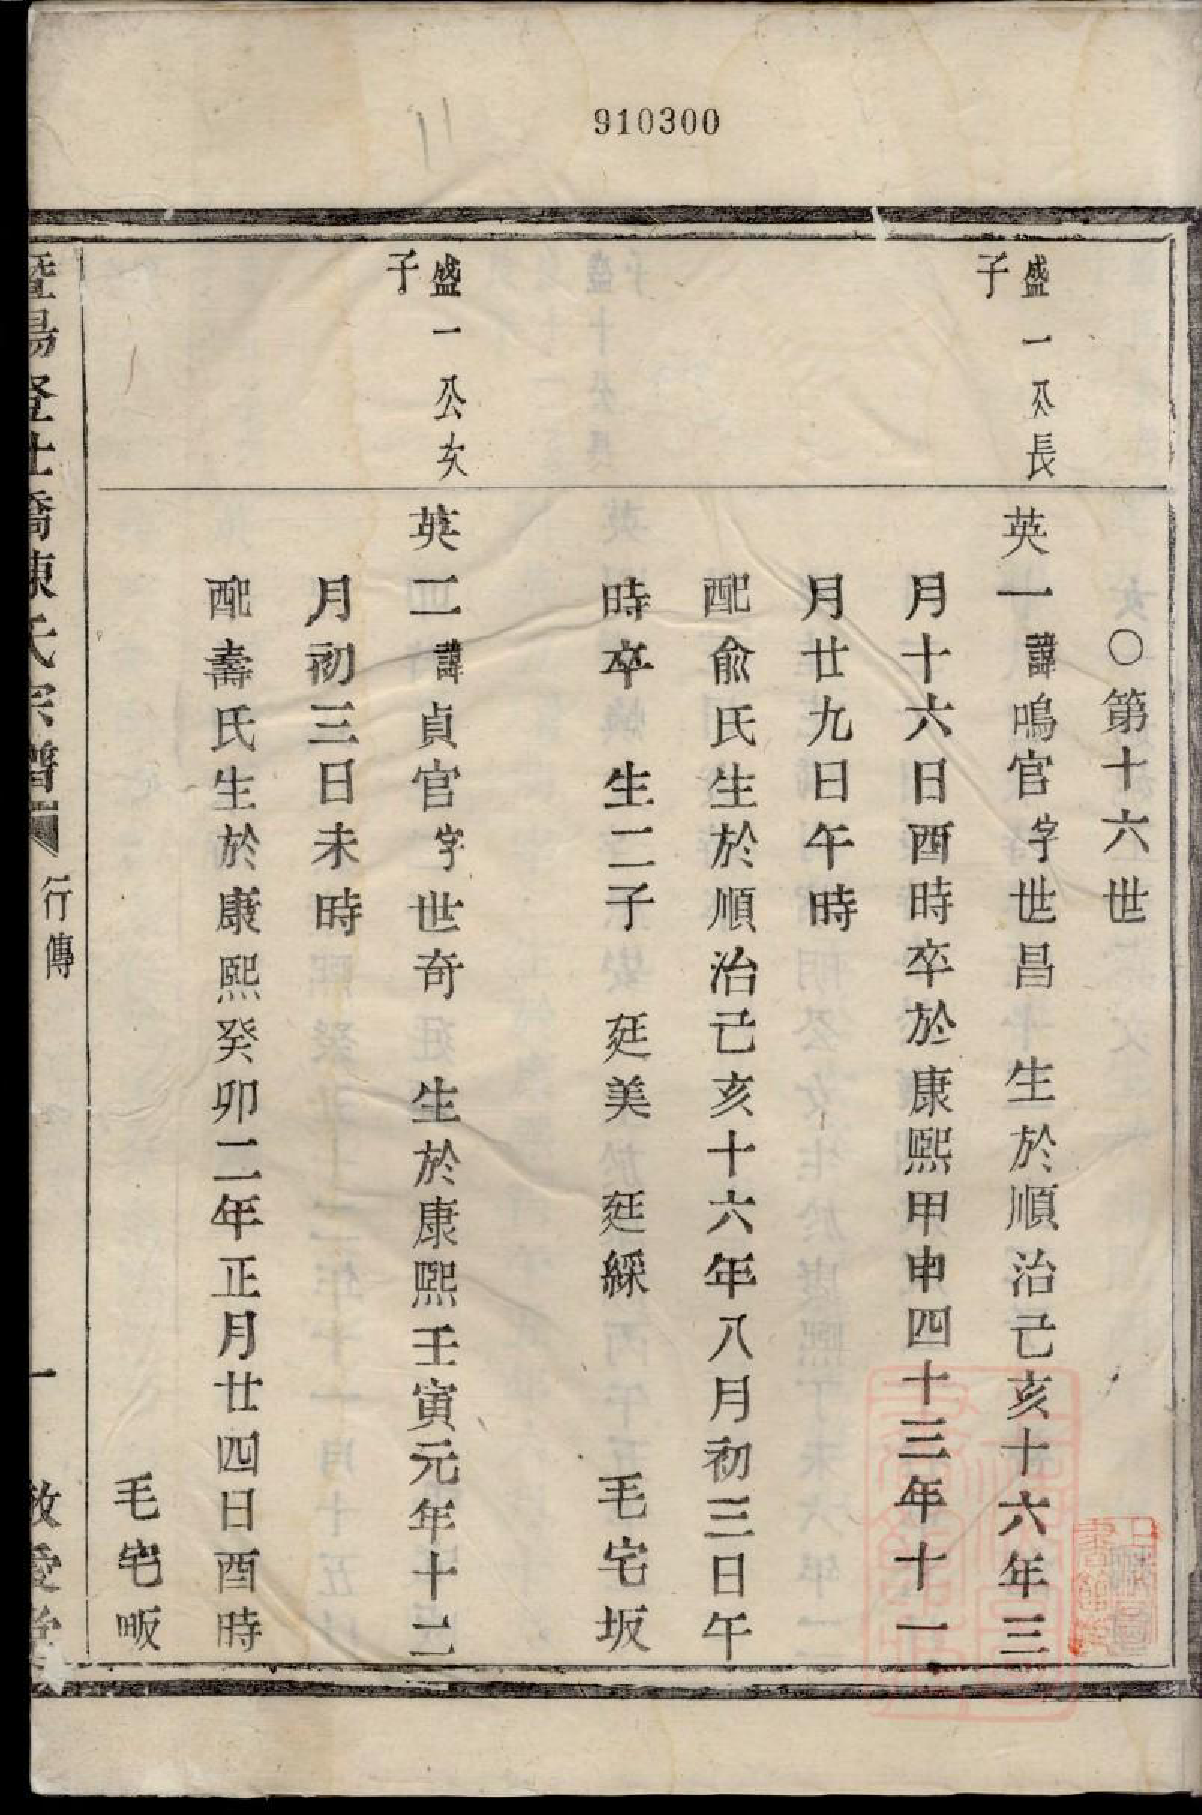 910300
〇第十六世
盛一公長
子
英一諱鳴官字世昌 生於順治己亥十六年三
月十六日酉時卒於康熙甲申四十三年十一
月廿九日午時
配兪氏生於順治己亥十六年八月初三日午
時卒 生二子 廷美 廷綵 毛宅坂
盛一公次
子
英二諱貞官字世奇 生於康熙壬寅元年十二
月初三日未時
配壽氏生於康熙癸卯二年正月廿四日酉時
毛宅畈
暨陽登仕橋陳氏宗譜 行傳 一 敘愛堂